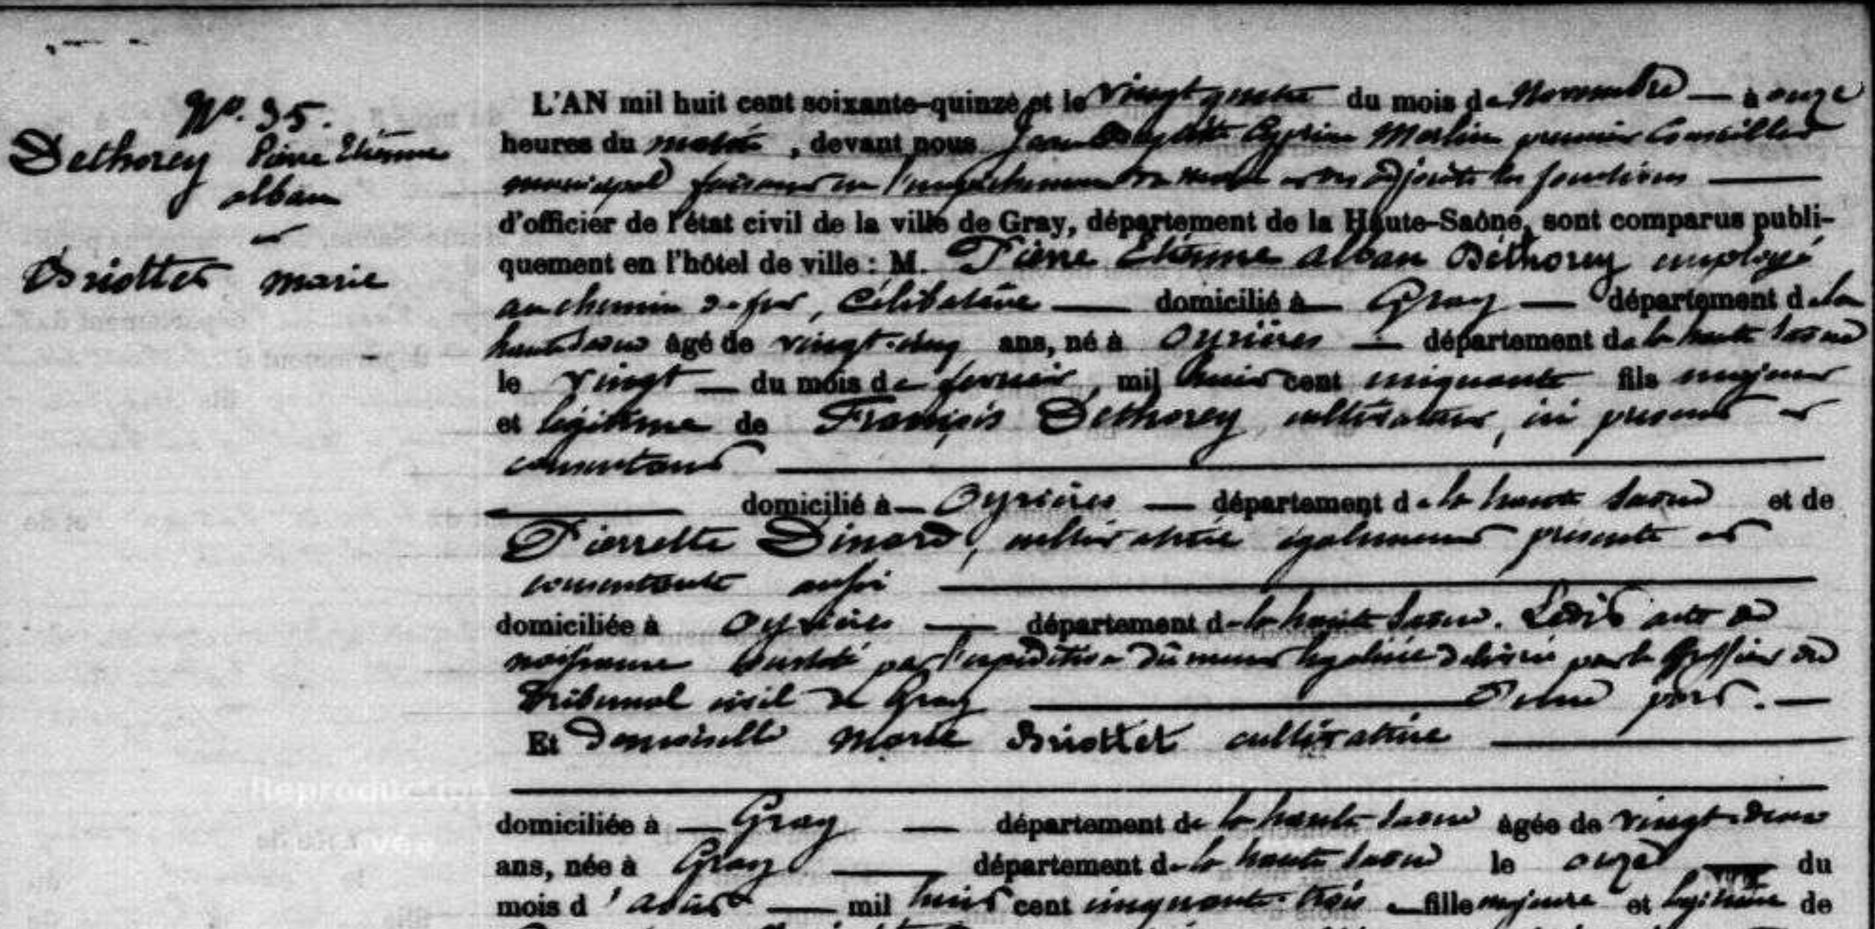 N°. 35.
Dethorey Pierre Etienne
alban
et
Briottet marie
L'AN mil huit cent soixante-quinze et le vingt quatre du mois de Novembre — à onze
heures du matin, devant nous Jean Baptiste Cyprien Merlin premier Conseiller
municipal faisant en l'empêchement du maire et des adjoints les fonctions —
d'officier de l'état civil de la ville de Gray, département de la Haute-Saône, sont comparus publi-
quement en l'hôtel de ville : M. Pierre Etienne alban Dethorey employé
au chemin de fer, Célibataire — domicilié à Gray — département de la
haute Saone âgé de vingt-cinq ans, né à Oyrières — département de la haute Saone
le vingt — du mois de fevrier, mil huit cent cinquante fils majeur
et légitime de François Dethorey cultivateur, ici present et
consentant —
— domicilié à — Oyrières — département de la haute Saone et de
Pierrette Dinard, cultivatrice également présente et
consentante aussi —
domiciliée à Oyrières — département de la haute Saone. Ledit acte de
naissance constaté par l'expédition du meme légalisée délivrée par le Greffier du
Tribunal civil de Gray — D'une part. —
Et Demoiselle Marie Briottet cultivatrice —
domiciliée à — Gray — département de la haute Saone âgée de vingt-deux
ans, née à Gray — département de la haute Saone le onze — du
mois d'août — mil huit cent cinquante-trois — fille majeure et légitime de
Reproduction